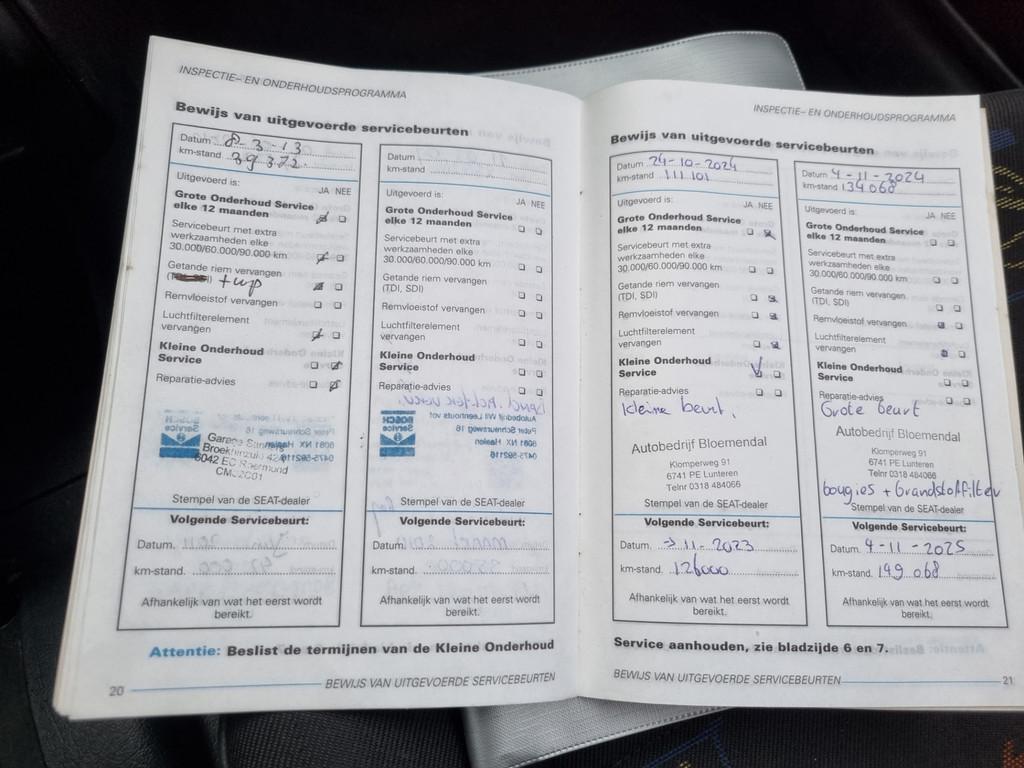 INSPECTIE- EN ONDERHOUDSPROGRAMMA
Bewijs van uitgevoerde servicebeurten
Datum 8-3-13
km-stand 39372
Uitgevoerd is:
JA NEE
Grote Onderhoud Service
elke 12 maanden
Servicebeurt met extra
werkzaamheden elke
30.000/60.000/90.000 km
Getande riem vervangen
+ wp
Remvloeistof vervangen
Luchtfilterelement
vervangen
Kleine Onderhoud
Service
Reparatie-advies
Garage
6042 EC Roermond
Stempel van de SEAT-dealer
Volgende Servicebeurt:
Datum
km-stand
Afhankelijk van wat het eerst wordt
bereikt.
Datum
km-stand
Uitgevoerd is:
JA NEE
Grote Onderhoud Service
elke 12 maanden
Servicebeurt met extra
werkzaamheden elke
30.000/60.000/90.000 km
Getande riem vervangen
(TDI, SDI)
Remvloeistof vervangen
Luchtfilterelement
vervangen
Kleine Onderhoud
Service
Reparatie-advies
Stempel van de SEAT-dealer
Volgende Servicebeurt:
Datum
km-stand
Afhankelijk van wat het eerst wordt
bereikt.
Attentie: Beslist de termijnen van de Kleine Onderhoud
20
BEWIJS VAN UITGEVOERDE SERVICEBEURTEN
INSPECTIE- EN ONDERHOUDSPROGRAMMA
Bewijs van uitgevoerde servicebeurten
Datum 24-10-2024
km-stand 111 101
Uitgevoerd is:
JA NEE
Grote Onderhoud Service
elke 12 maanden
Servicebeurt met extra
werkzaamheden elke
30.000/60.000/90.000 km
Getande riem vervangen
(TDI, SDI)
Remvloeistof vervangen
Luchtfilterelement
vervangen
Kleine Onderhoud
Service
Reparatie-advies
kleine beurt.
Autobedrijf Bloemendal
Klomperweg 91
6741 PE Lunteren
Telnr 0318 484066
Stempel van de SEAT-dealer
Volgende Servicebeurt:
Datum. → 11-2023
km-stand. 126000
Afhankelijk van wat het eerst wordt
bereikt.
Datum 4-11-2024
km-stand 134068
Uitgevoerd is:
JA NEE
Grote Onderhoud Service
elke 12 maanden
Servicebeurt met extra
werkzaamheden elke
30.000/60.000/90.000 km
Getande riem vervangen
(TDI, SDI)
Remvloeistof vervangen
Luchtfilterelement
vervangen
Kleine Onderhoud
Service
Reparatie-advies
Grote beurt
Autobedrijf Bloemendal
Klomperweg 91
6741 PE Lunteren
Telnr 0318 484066
bougies + Brandstoffilter
Stempel van de SEAT-dealer
Volgende Servicebeurt:
Datum. 4-11-2025
km-stand. 149 068
Afhankelijk van wat het eerst wordt
bereikt.
Service aanhouden, zie bladzijde 6 en 7.
BEWIJS VAN UITGEVOERDE SERVICEBEURTEN
21